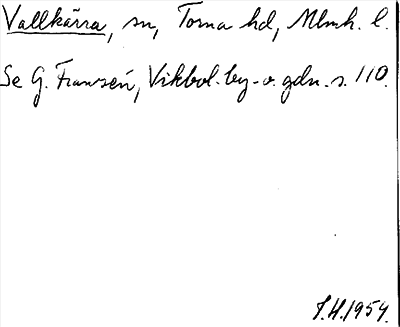 Vallkärra, sn, Torna hd, Mlmh. l.
Se G. Fransén, Vikbol. by- o. gdn. s. 110.
J.H. 1954.